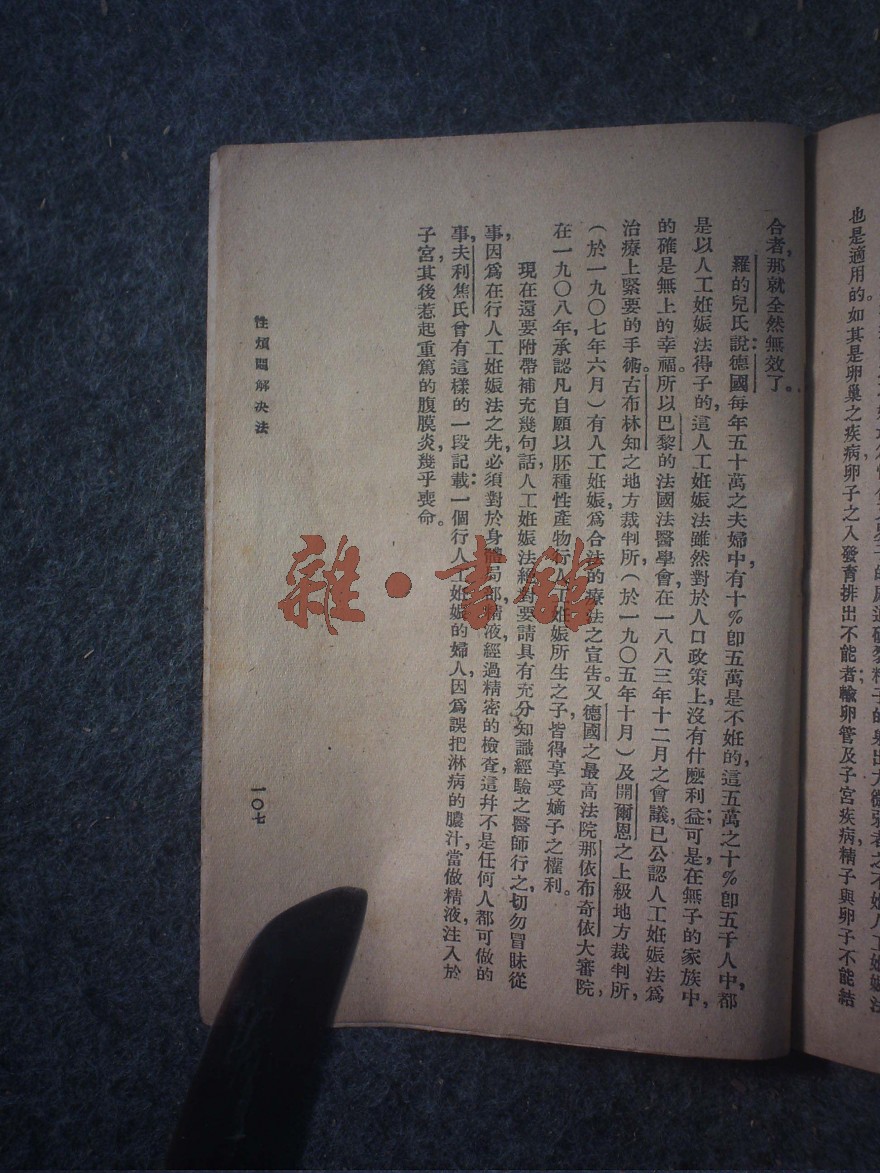 也是適用的。如其是卵巢之疾病,卵子之入發育排出不能者;輸卵管及子宮疾病,精子與卵子不能結
合者,那就全然無效了。
羅的兒氏說:德國每年五十萬之夫婦中,有十%卽五萬是不妊的,這五萬之十%卽五千人中,都
是以人工妊娠法得子的,這人工妊娠法雖然對於人口政策上,沒有什麽利益;可是在無子的家族中,
的確是無上的幸福。所以巴黎的法國法醫學會,在一八八三年十二月之會議,已公認人工妊娠法爲
治療上緊要的手術。古布林知之地方裁判所(於一九〇五年十月)及開爾恩之上級地方裁判所,
(於一九〇七年六月)有人工妊娠,爲合法的療法之宣告。又德國之最高法院那依布奇依大審院,
在一九〇八年,承認凡自願以胚種性產物行人工妊娠所生之子,皆得享受嫡子之權利。
現在還要附帶補充幾句話,人工妊娠法絕對要請具有充分知識經驗之醫師行之,切勿冒昧從
事,因爲在行人工妊娠法之先,必須對於身體局部精液,經過精密的檢查,這幷不是任何人都可做的
事,夫利焦氏曾有這樣的一段記載:一個行人工妊娠的婦人,因爲誤把淋病的膿汁,當做精液,注入於
子宮,其後惹起重篤的腹膜炎,幾乎喪命。
性煩悶解決法
一〇七
雜·書館